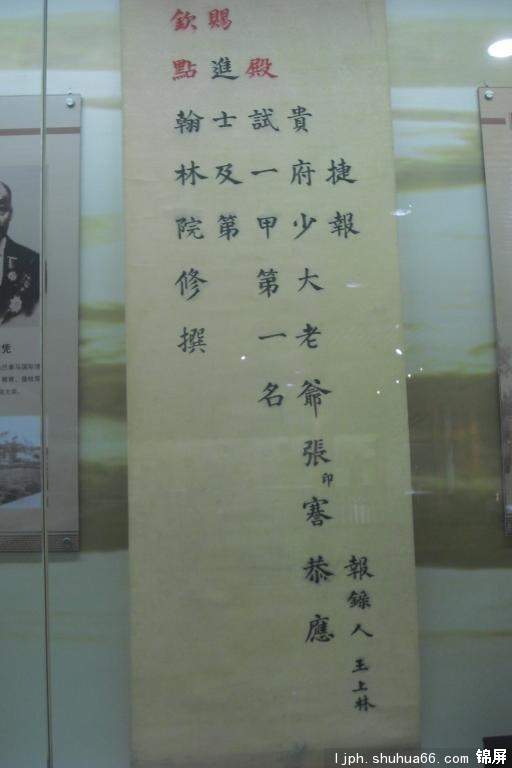 捷報
貴府少大老爺張印謇恭應
殿試一甲第一名
賜進士及第
欽點翰林院修撰
報錄人 王上林
ljph.shuhua66.com 锦屏